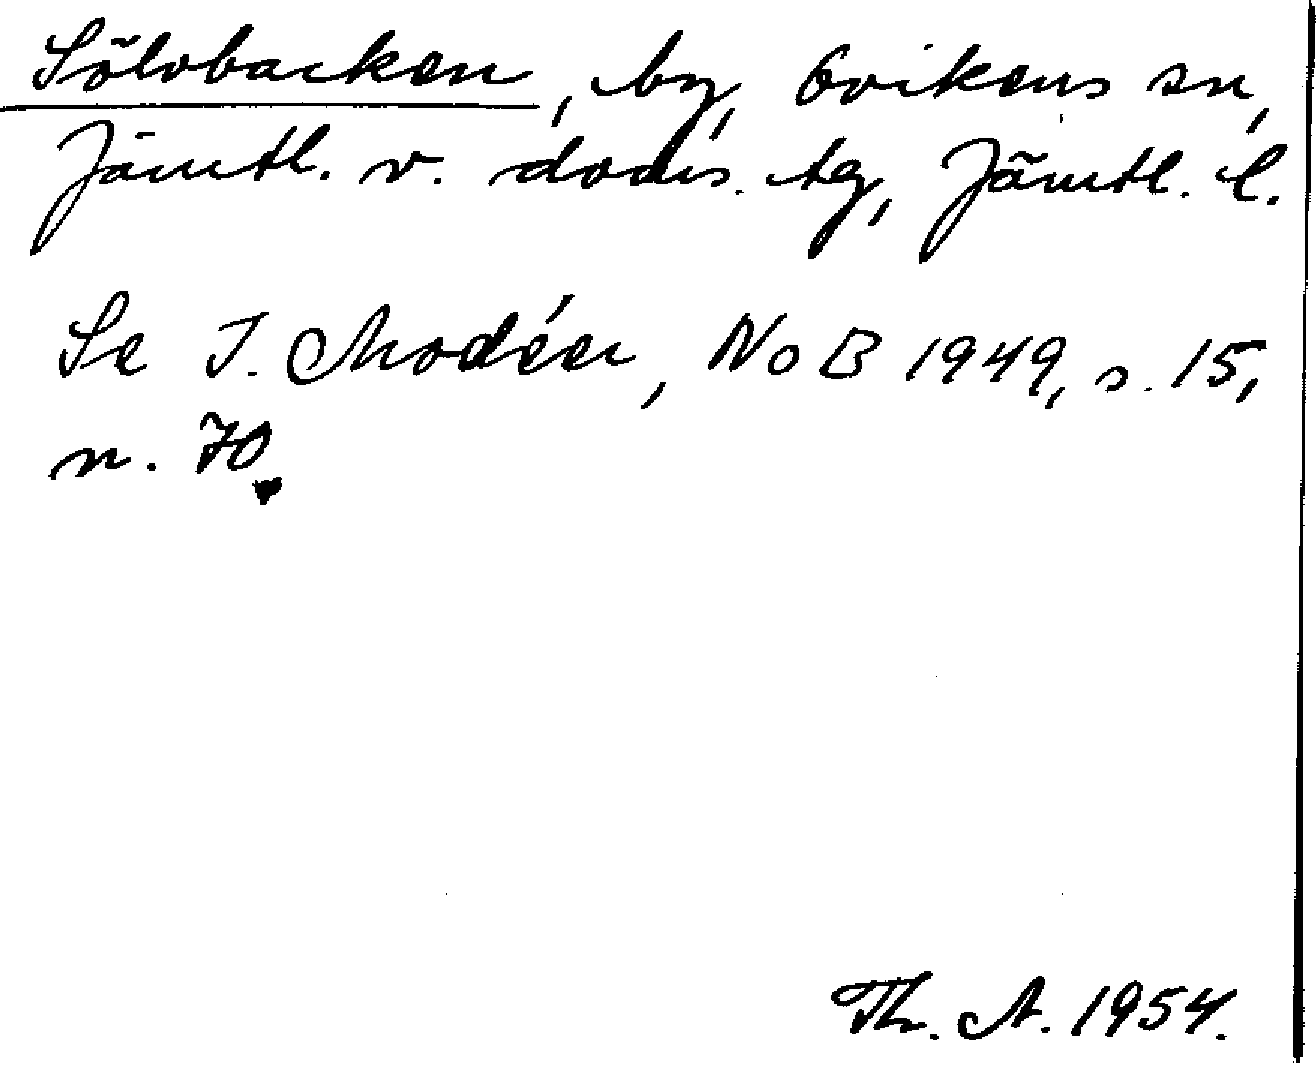 Sölvbacken, by, Ovikens sn,
Jämtl. v. doms. tg, Jämtl. l.
Se I. Modéer, NoB 1949, s. 15,
n. 70.
Th. A. 1954.